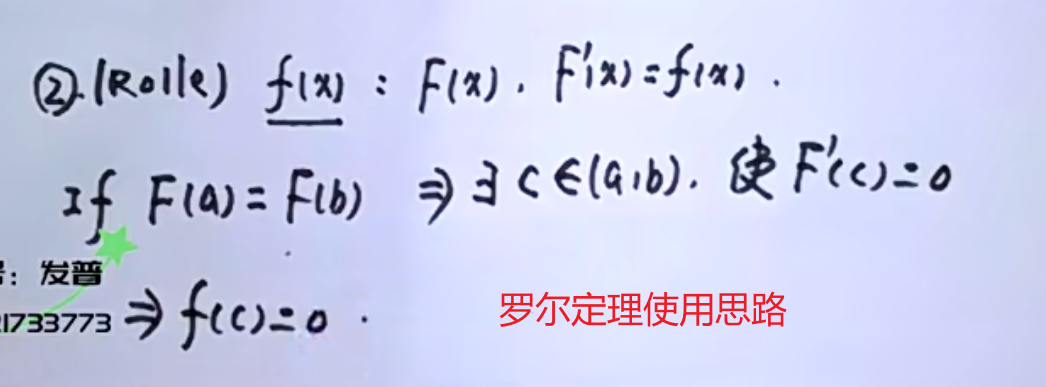 ②.(Rolle) f(x) : F(x). F'(x)=f(x).
If F(a)=F(b) ⇒∃ c∈(a,b). 使 F'(c)=0
: 发普
1733773
⇒ f(c)=0.
罗尔定理使用思路